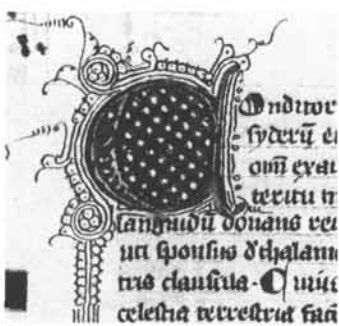 C Onditor
syderũ et
om̃ exau
teritu m
languidũ donans rei
uti sponsus d' thalam
tris clausula · C uiu
celestia terrestria fac